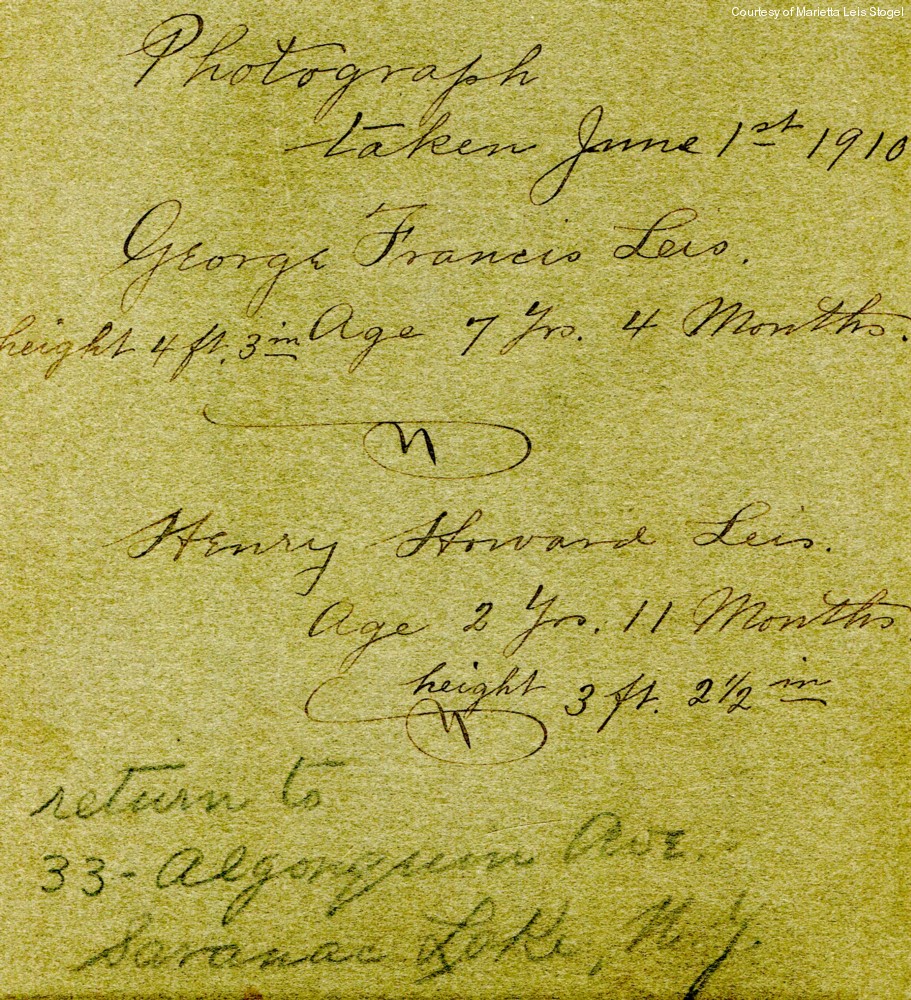 Courtesy of Marietta Leis Stogel
Photograph
taken June 1st 1910
George Francis Leis.
height 4 ft. 3 in Age 7 Yrs. 4 Months.
Henry Howard Leis.
Age 2 Yrs. 11 Months
height 3 ft. 2 1/2 in
return to
33 - Algonquin Ave.
Saranac Lake, N.Y.